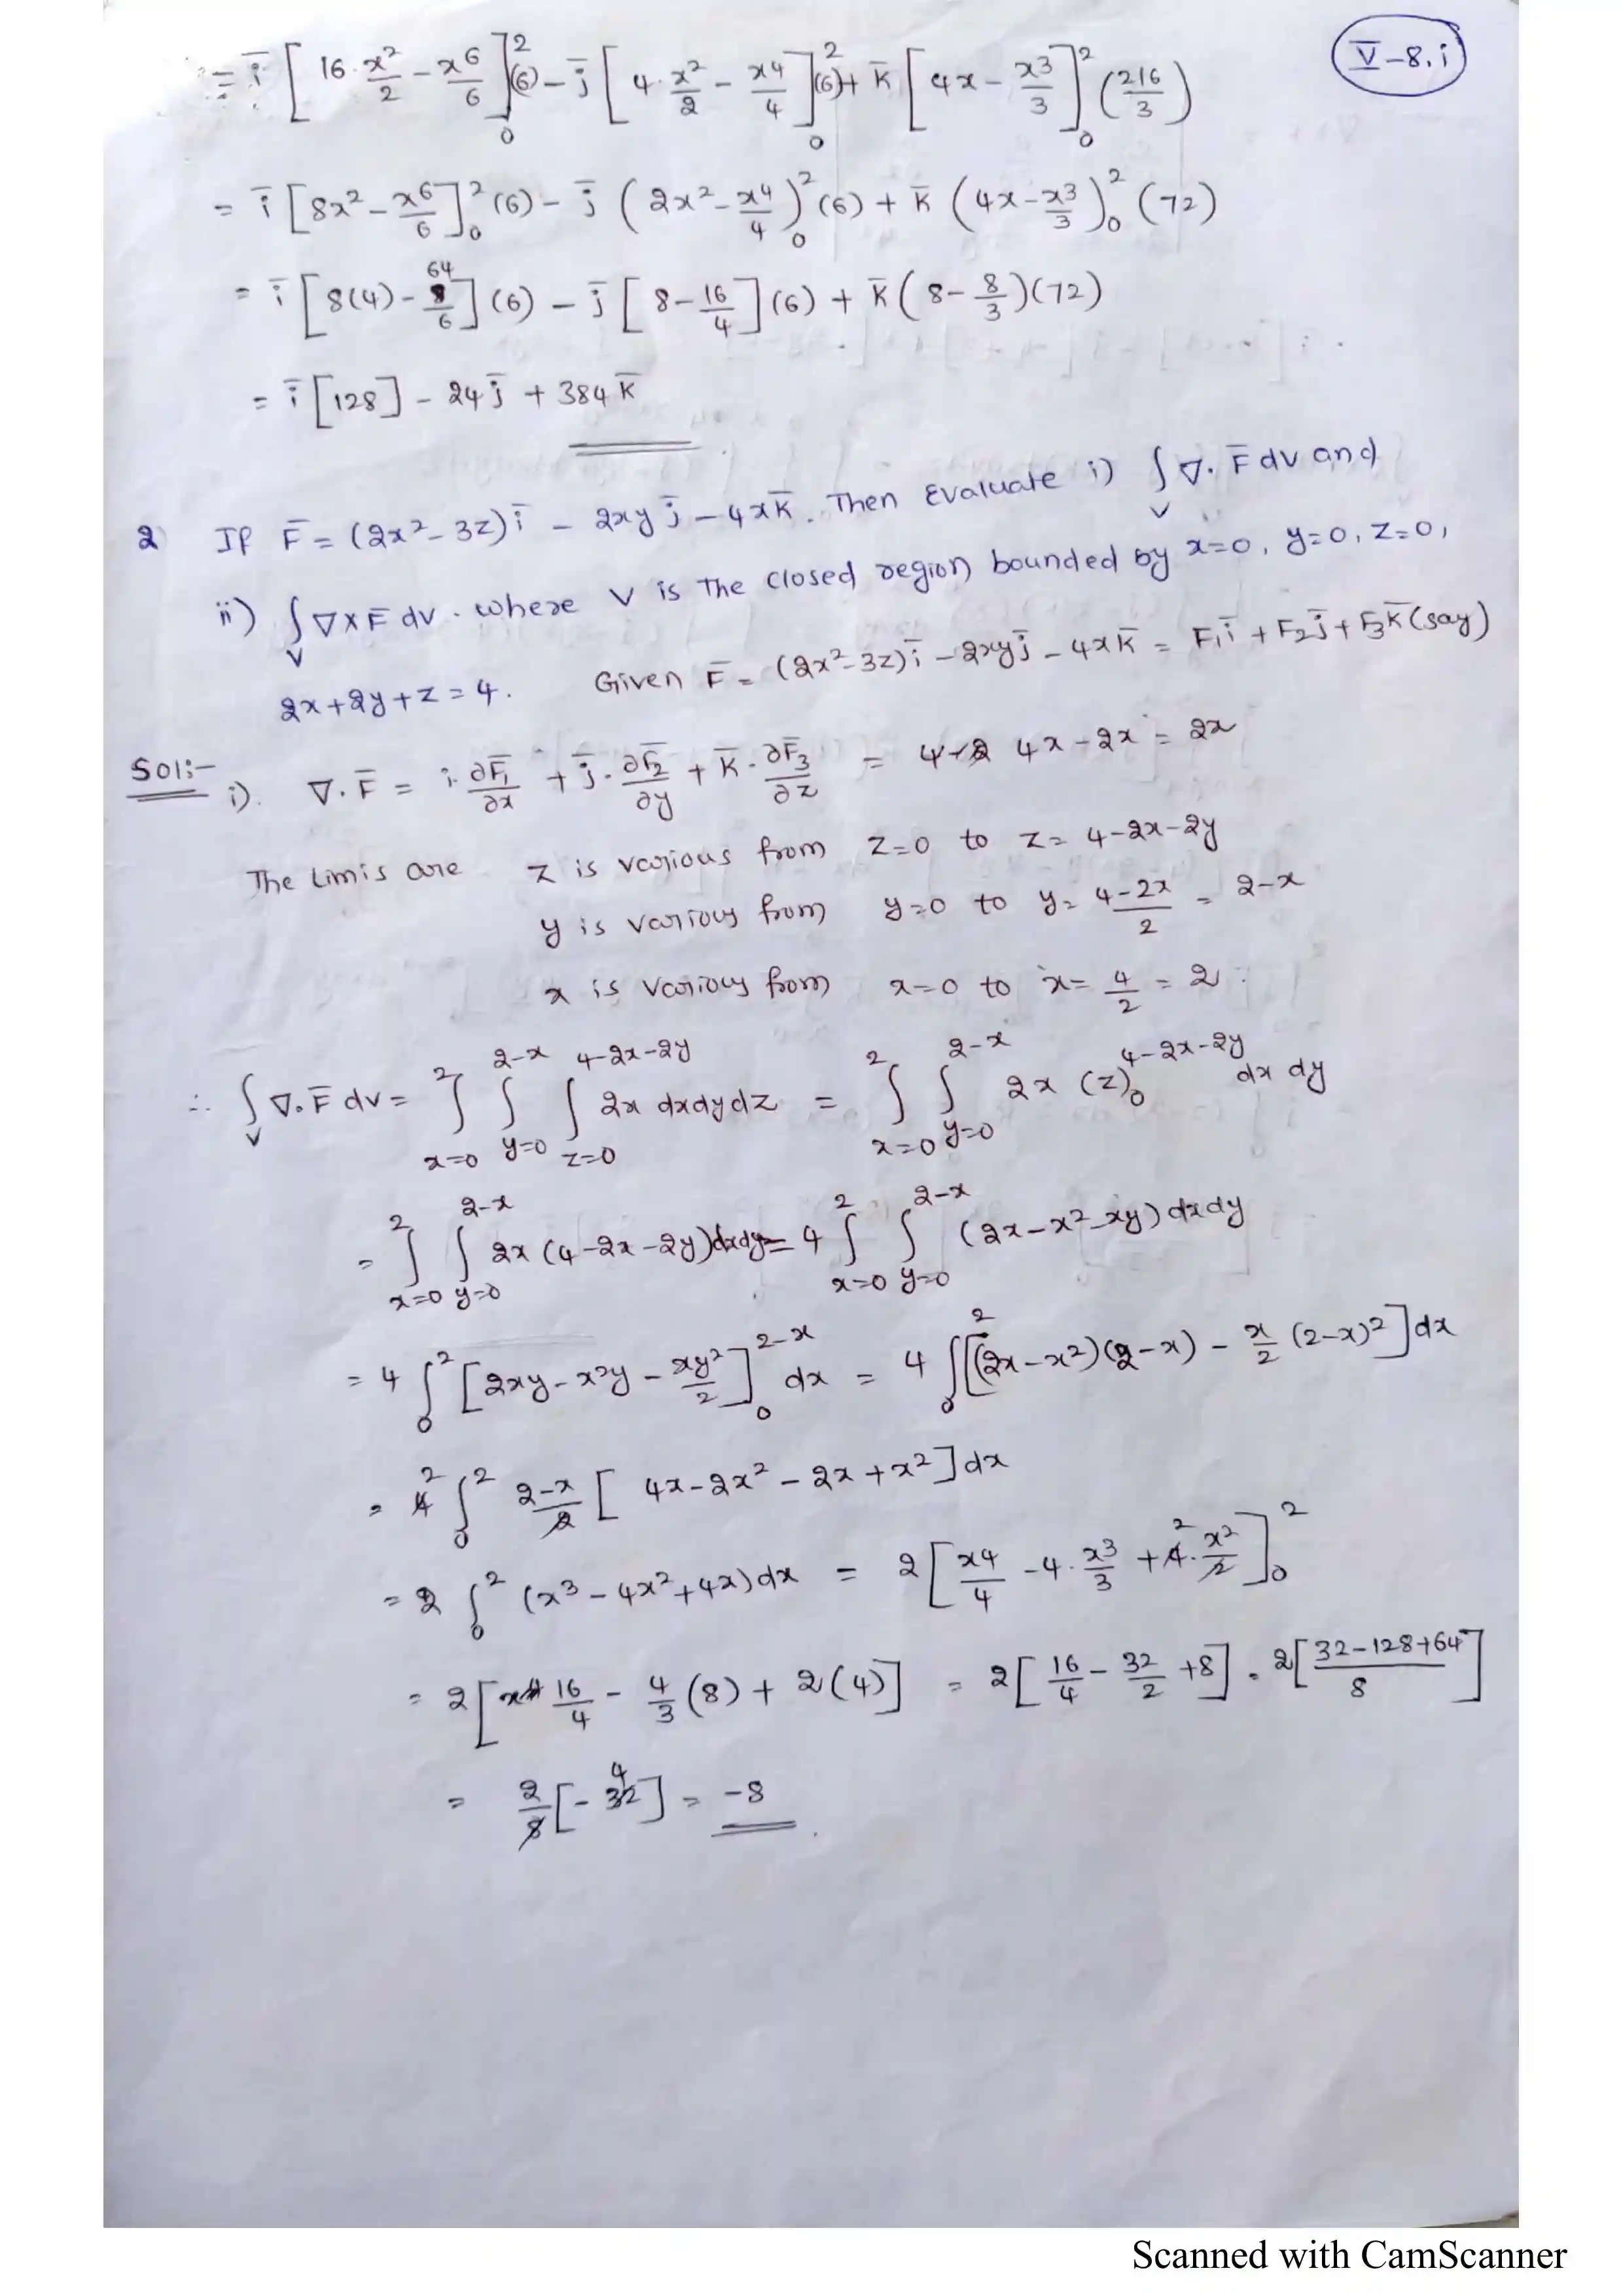 V-8.i
= i̅ [16·x²/2 - x⁶/6]₀² (6) - j̅ [4·x²/2 - x⁴/4]₀² (6) + k̅ [4x - x³/3]₀² (216/3)
= i̅ [8x² - x⁶/6]₀² (6) - j̅ (2x² - x⁴/4)₀² (6) + k̅ (4x - x³/3)₀² (72)
= i̅ [8(4) - 64/6] (6) - j̅ [8 - 16/4] (6) + k̅ (8 - 8/3)(72)
= i̅ [128] - 24 j̅ + 384 k̅
2) If F̅ = (2x² - 3z) i̅ - 2xy j̅ - 4x k̅. Then Evaluate i) ∫_V ∇·F̅ dv and
ii) ∫_V ∇×F̅ dv. where V is the closed region bounded by x=0, y=0, z=0,
2x+2y+z=4. Given F̅ = (2x²-3z) i̅ - 2xy j̅ - 4x k̅ = F₁ i̅ + F₂ j̅ + F₃ k̅ (say)
Sol:- i). ∇·F̅ = i·∂F̅₁/∂x + j̅·∂F̅₂/∂y + k̅·∂F̅₃/∂z = 4x-2x = 2x
The Limis are z is various from z=0 to z=4-2x-2y
y is various from y=0 to y= (4-2x)/2 = 2-x
x is various from x=0 to x= 4/2 = 2
∴ ∫_V ∇·F̅ dv = ∫_{x=0}^{2} ∫_{y=0}^{2-x} ∫_{z=0}^{4-2x-2y} 2x dxdydz = ∫_{x=0}^{2} ∫_{y=0}^{2-x} 2x (z)₀^{4-2x-2y} dx dy
= ∫_{x=0}^{2} ∫_{y=0}^{2-x} 2x (4-2x-2y) dxdy = 4 ∫_{x=0}^{2} ∫_{y=0}^{2-x} (2x-x²-xy) dxdy
= 4 ∫₀² [2xy - x²y - xy²/2]₀^{2-x} dx = 4 ∫₀² [(2x-x²)(2-x) - x/2 (2-x)²] dx
= 4 2 ∫₀² (2-x)/2 [4x-2x²-2x+x²] dx
= 2 ∫₀² (x³-4x²+4x) dx = 2 [x⁴/4 - 4·x³/3 + 4·x²/2]₀²
= 2 [16/4 - 4/3 (8) + 2(4)] = 2 [16/4 - 32/2 + 8] = 2 [(32-128+64)/8]
= 2/8 [-32] = -8
Scanned with CamScanner